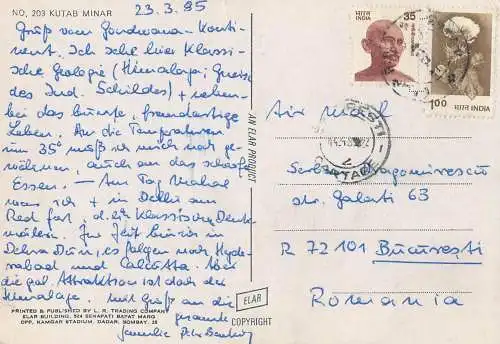 NO, 203 KUTAB MINAR
23.3.85
Gruß vom Gondwana-Konti-
nent. Ich sehe hier klassi-
sche Geologie (Himalaya; Gneise
des Ind. Schildes) + neben-
bei das bunte, fremdartige
Leben. An die Temperaturen
um 35° muß ich mich noch ge-
wöhnen, auch an das scharfe
Essen. — Am Taj Mahal
war ich + in Delhi am
Red Fort, d.h. klassische Denk-
mäler. Zur Zeit bin ich in
Dehra Dun, es folgen noch Hyde-
rabad und Calcutta. Aber
die Attraktion ist doch der
Himalaya. Mit Gruß an die
gesamte
Familie
PRINTED & PUBLISHED BY L. R. TRADING COMPANY
ELAR BUILDING, 524 SENAPATI BAPAT MARG
OPP, KAMGAR STADIUM, DADAR, BOMBAY. 28
AN ELAR PRODUCT
ELAR
COPYRIGHT
35
भारत INDIA
100 भारत INDIA
Air Mail
Str. Galati 63
R 72101 Bucuresti
Romania